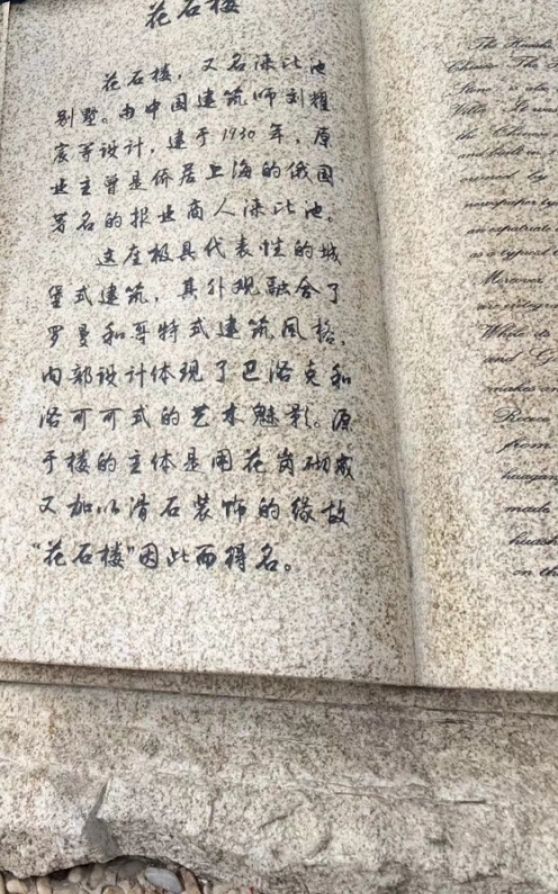 花石楼
花石楼，又名涞比池
别墅。由中国建筑师刘耀
宸等设计，建于1930年，原
业主曾是侨居上海的俄国
著名的报业商人涞比池。
这座极具代表性的城
堡式建筑，其外观融合了
罗曼和哥特式建筑风格，
内部设计体现了巴洛克和
洛可可式的艺术魅影。源
于楼的主体是用花岗砌成
又加以滑石装饰的缘故
“花石楼”因此而得名。
The
Chinese The
Stone is also
Villa. It was
the Chinese
and built in
owned by
newspaper
an expatriate
as a typical
Moreover
are integra
While its
and G
makes a
Rococo
from
huagan
made
huash
on th